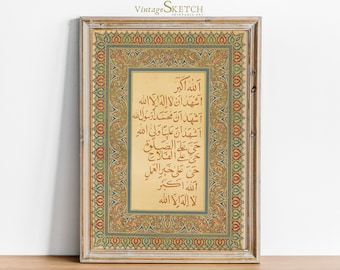 Vintage SKETCH
PRINTABLE ART
الله اكبر
اشهد ان لا اله الا الله
اشهد ان محمد رسول الله
اشهد ان عليا ولي الله
حي على الصلوة
حي على الفلاح
حي على خير العمل
الله اكبر
لا اله الا الله